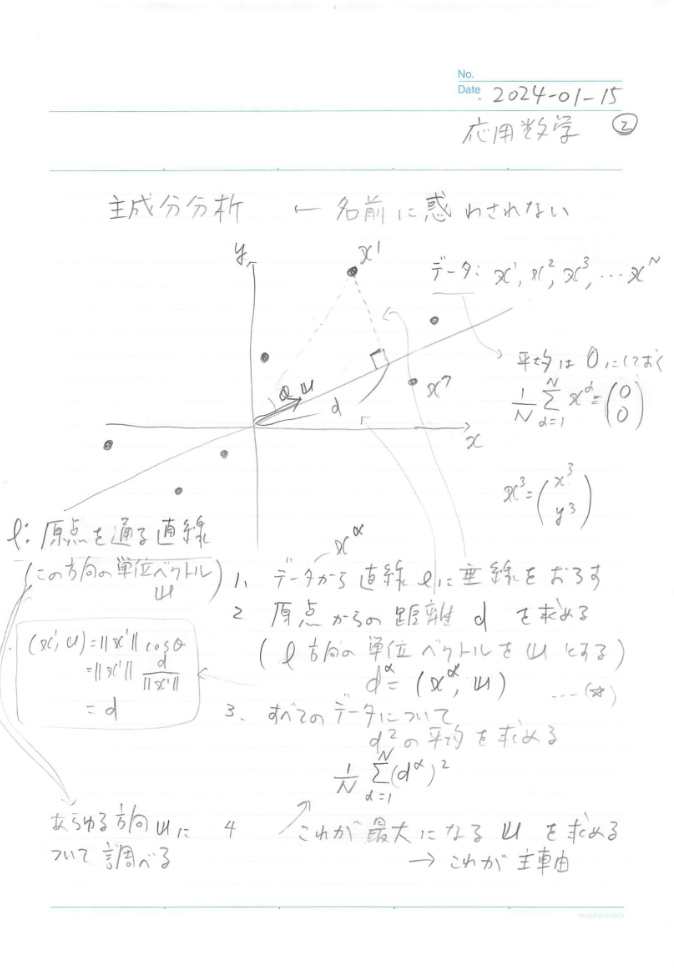 No.
Date 2024-01-15
応用数学 ②
主成分分析 ← 名前に惑わされない
y
x¹
データ: x¹, x², x³, … xᴺ
平均は 0 にしておく
1/N Σ_{α=1}^{N} xᵅ = (0 0)
θ u
d
x⁷
x
x³ = (x³ y³)
l: 原点を通る直線
(この方向の単位ベクトル u)
xᵅ
1. データから直線lに垂線をおろす
2 原点からの距離 d を求める
(l方向の単位ベクトルをuとする)
dᵅ = (xᵅ, u) ---- (*)
(x¹, u) = ||x¹|| cosθ
= ||x¹|| d/||x¹||
= d
3. すべてのデータについて
d²の平均を求める
1/N Σ_{α=1}^{N} (dᵅ)²
あらゆる方向uに
ついて調べる
4 これが最大になる u を求める
→ これが主軸
maruman